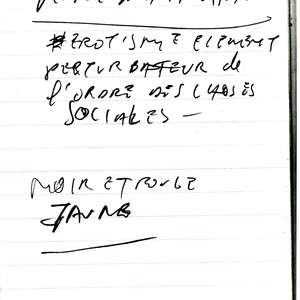 EROTISME ELEMENT
PERTURBATEUR de
l'ORDRE DES CHOSES
SOCIALES —
NOIR ET ROUGE
JAUNE